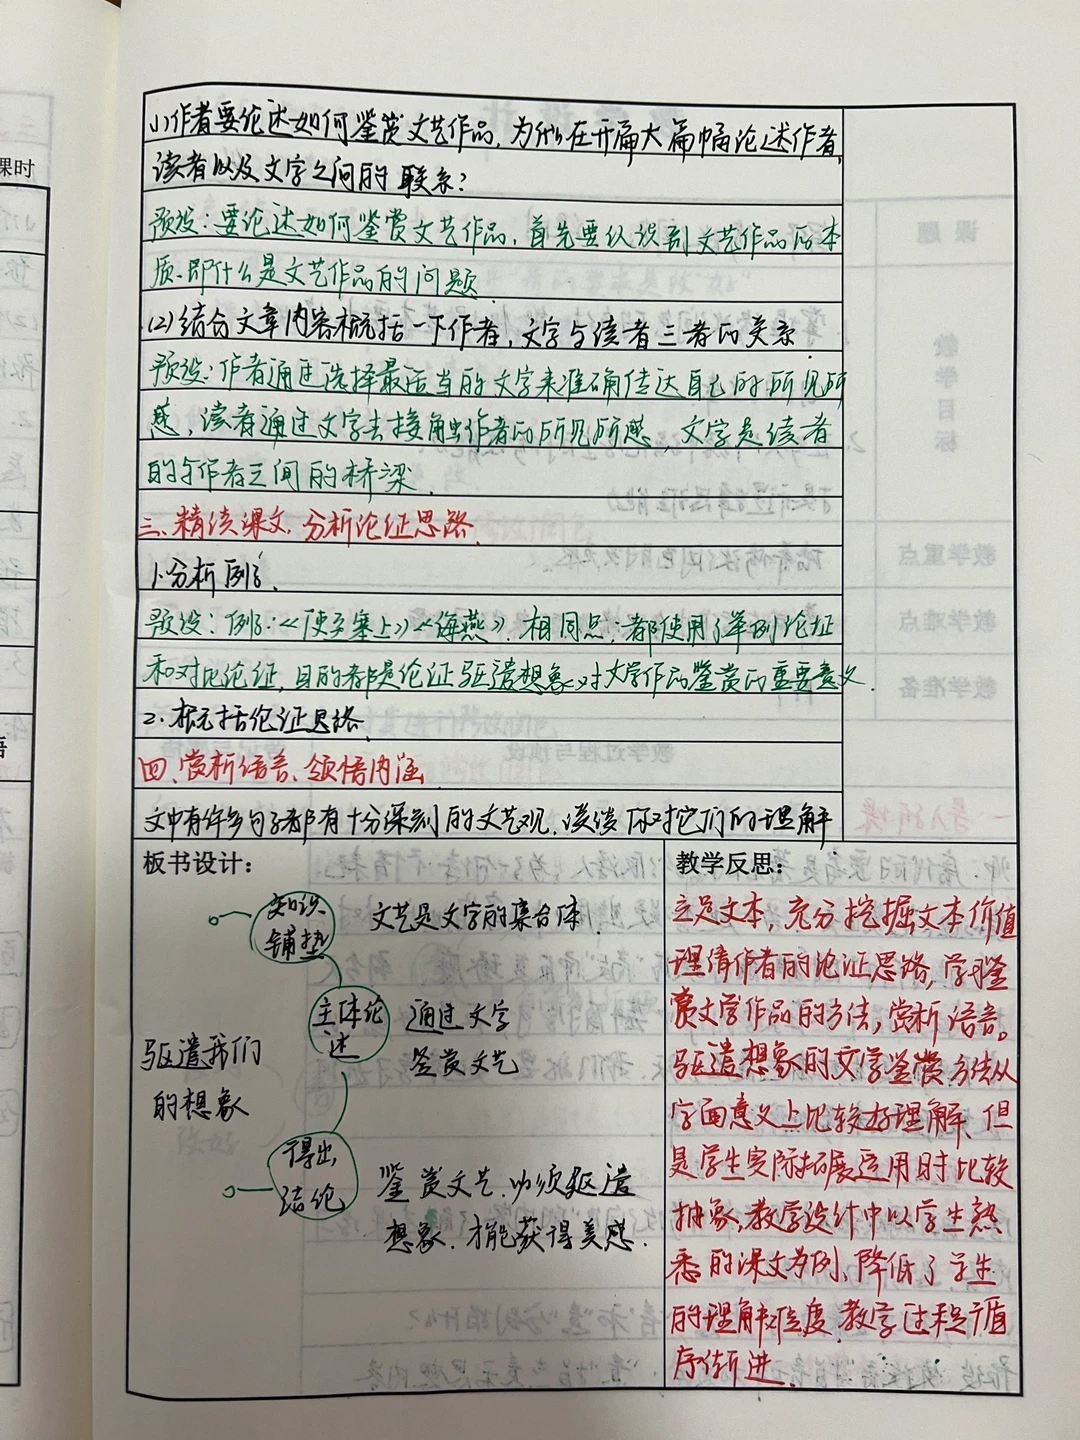 (1)作者要论述如何鉴赏文艺作品,为什么在开篇大篇幅论述作者,
读者以及文字之间的联系?
预设:要论述如何鉴赏文艺作品,首先要认识到文艺作品的本
质.即什么是文艺作品的问题.
(2)结合文章内容概括一下作者,文字与读者三者的关系.
预设:作者通过选择最适当的文字来准确传达自己的所见所
感,读者通过文字去接触作者的所见所感,文字是读者
的与作者之间的桥梁.
三.精读课文,分析论证思路.
1.分析例子.
预设:例子:《使至塞上》《海燕》.相同点:都使用了举例论证
和对比论证,目的都是论证驱遣想象对文学作品鉴赏的重要意义.
2.概括论证思路.
四.赏析语言、领悟内涵
文中有许多句子都有十分深刻的文艺观,谈谈你对它们的理解
板书设计:
知识
铺垫
文艺是文字的集合体.
主体论
述
通过文字
鉴赏文艺
驱遣我们
的想象
得出
结论
鉴赏文艺.必须驱遣
想象.才能获得美感.
教学反思:
立足文本,充分挖掘文本价值
理清作者的论证思路,学习鉴
赏文学作品的方法,赏析语言。
驱遣想象的文学鉴赏方法从
字面意义上比较好理解、但
是学生实际拓展运用时比较
抽象,教学设计中以学生熟
悉的课文为例、降低了学生
的理解难度.教学过程循
序渐进.
课时
课题
教学目标
教学重点
教学难点
教学准备
教学过程与预设